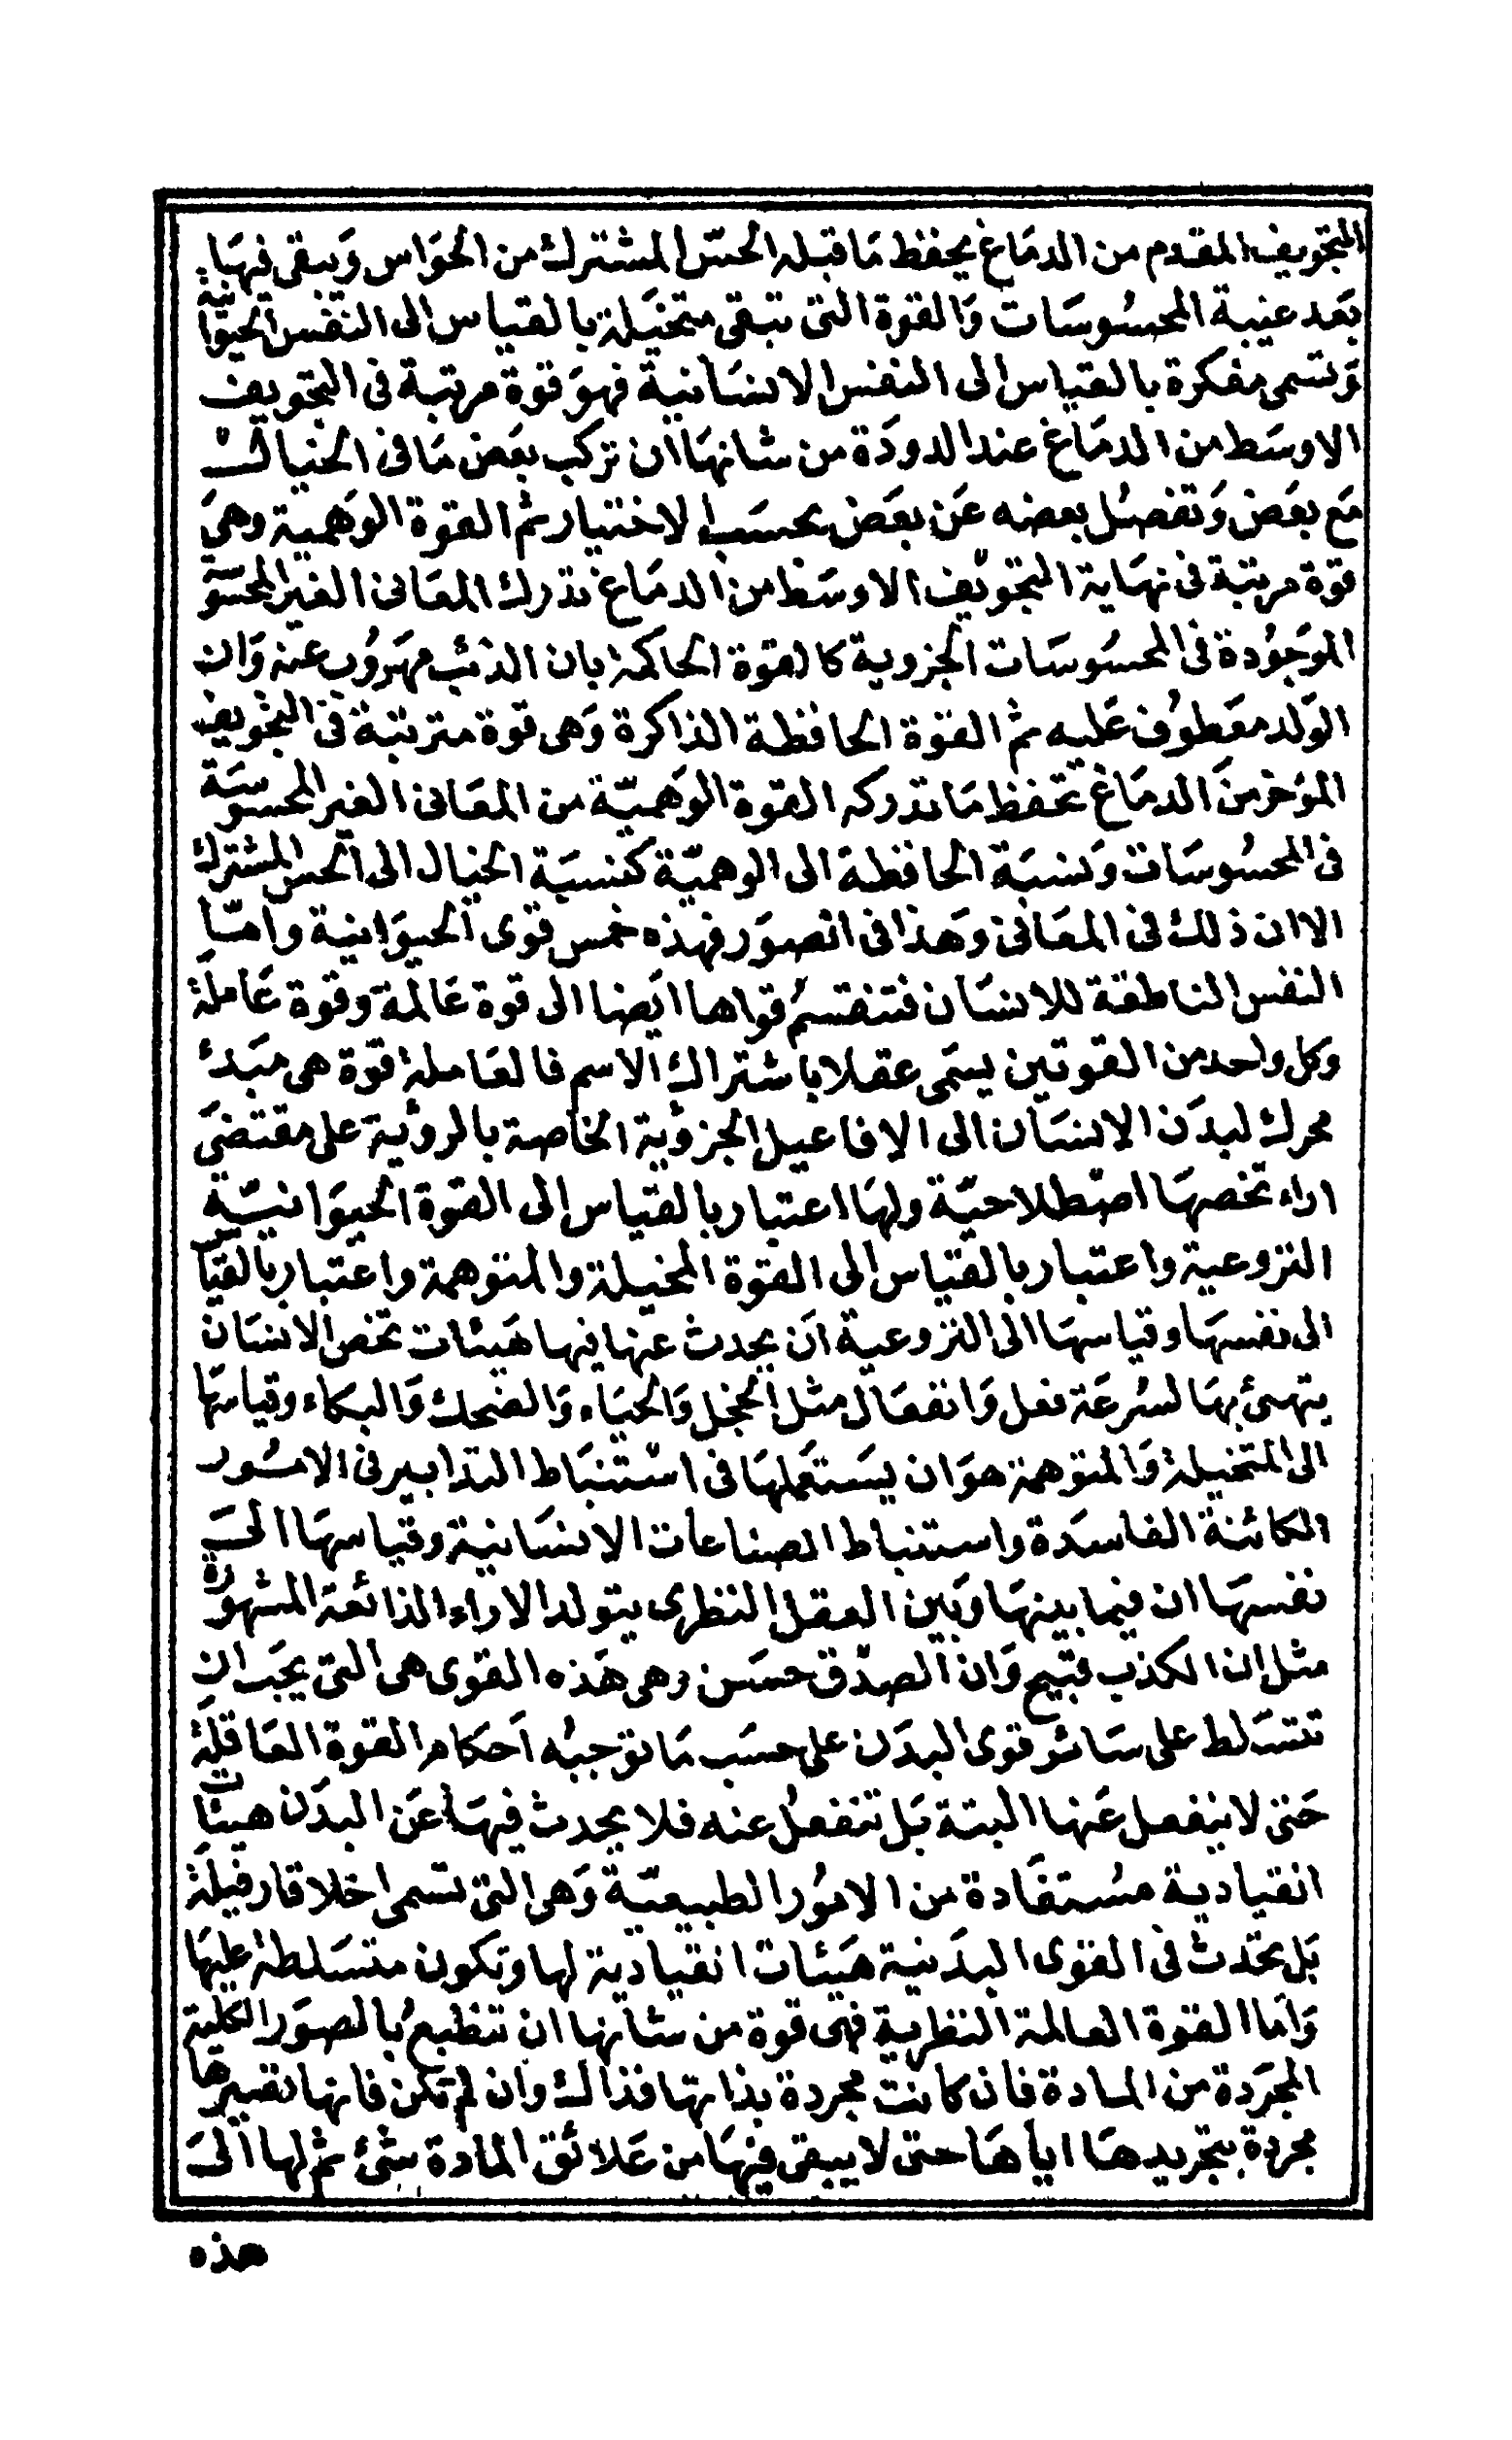 التجويف المقدم من الدماغ يحفظ ما قبله الحس المشترك من الحواس ويبقى فيها
بعد غيبة المحسوسات والقوة التى تبقى متخيلة بالقياس الى النفس الحيوانية
وتسمى مفكرة بالقياس الى النفس الانسانية فهو قوة مرتبة فى التجويف
الاوسط من الدماغ عند الدودة من شانها ان تركب بعض ما فى الخيال
مع بعض وتفصل بعضه عن بعض بحسب الاختيار ثم القوة الوهمية وهى
قوة مرتبة فى نهاية التجويف الاوسط من الدماغ تدرك المعانى الغير المحسوسة
الموجودة فى المحسوسات الجزوية كالقوة الحاكمة بان الذئب مهروب عنه وان
الولد معطوف عليه ثم القوة الحافظة الذاكرة وهى قوة مترتبة فى التجويف
المؤخر من الدماغ تحفظ ما تدركه القوة الوهمية من المعانى الغير المحسوسة
فى المحسوسات ونسبة الحافظة الى الوهمية كنسبة الخيال الى الحس المشترك
الا ان ذلك فى المعانى وهذا فى الصور فهذه خمس قوى الحيوانية واما
النفس الناطقة للانسان فتنقسم قواها ايضا الى قوة عالمة وقوة عاملة
وكل واحد من القوتين يسمى عقلا باشتراك الاسم فالعاملة قوة هى مبدئ
محرك لبدن الانسان الى الافاعيل الجزوية الخاصة بالروية على مقتضى
اراء تخصها اصطلاحية ولها اعتبار بالقياس الى القوة الحيوانية
النزوعية واعتبار بالقياس الى القوة المخيلة والمتوهمة واعتبار بالقياس
الى نفسها وقياسها الى النزوعية ان يحدث عنها فيها هيئات تخص الانسان
يتهيئ بها لسرعة فعل وانفعال مثل الخجل والحياء والضحك والبكاء وقياسها
الى المتخيلة والمتوهمة هو ان يستعملها فى استنباط التدابير فى الامور
الكائنة الفاسدة واستنباط الصناعات الانسانية وقياسها الى
نفسها ان فيما بينها وبين العقل النظرى يتولد الاراء الذائعة المشهورة
مثل ان الكذب قبيح وان الصدق حسن وهى هذه القوى هى التى يجب ان
تتسلط على سائر قوى البدن على حسب ما توجبه احكام القوة العاقلة
حتى لا ينفعل عنها البتة بل تنفعل عنه فلا يحدث فيها عن البدن هيئات
انقيادية مستفادة من الامور الطبيعية وهى التى تسمى اخلاقا رذيلة
بل تحدث فى القوى البدنية هيئات انقيادية لها وتكون متسلطة عليها
واما القوة العالمة النظرية فهى قوة من شانها ان تنطبع بالصور الكلية
المجردة من المادة فان كانت مجردة بذاتها فذالك وان لم تكن فانها تصيرها
مجردة بتجريدها اياها حتى لا يبقى فيها من علائق المادة شئ ثم لها الى
هذه